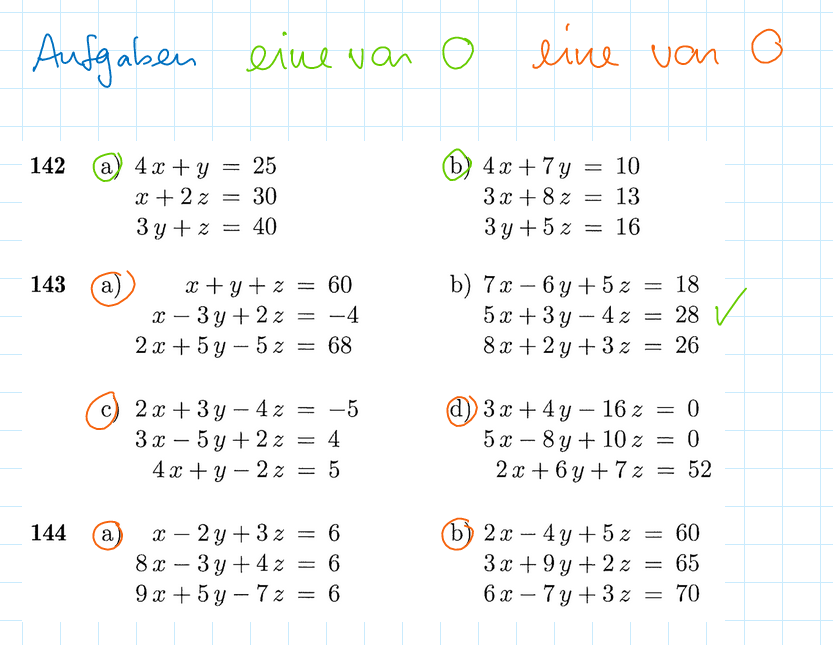 Aufgaben eine von O eine von O
142 a) 4x + y = 25 b) 4x + 7y = 10
x + 2z = 30 3x + 8z = 13
3y + z = 40 3y + 5z = 16
143 a) x + y + z = 60 b) 7x − 6y + 5z = 18
x − 3y + 2z = −4 5x + 3y − 4z = 28 ✓
2x + 5y − 5z = 68 8x + 2y + 3z = 26
c) 2x + 3y − 4z = −5 d) 3x + 4y − 16z = 0
3x − 5y + 2z = 4 5x − 8y + 10z = 0
4x + y − 2z = 5 2x + 6y + 7z = 52
144 a) x − 2y + 3z = 6 b) 2x − 4y + 5z = 60
8x − 3y + 4z = 6 3x + 9y + 2z = 65
9x + 5y − 7z = 6 6x − 7y + 3z = 70